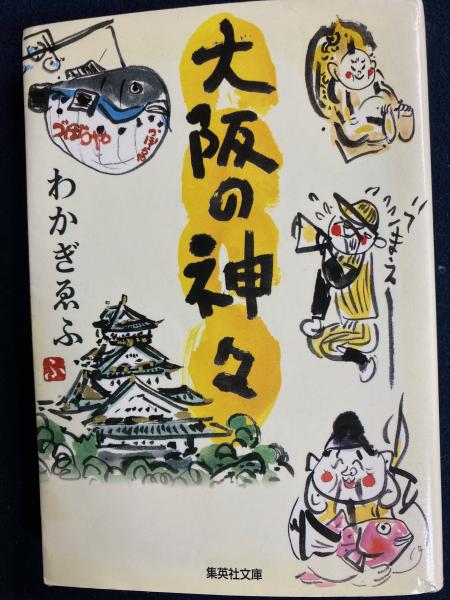 大阪の神々
わかぎゑふ
づぼらや
でまえー
集英社文庫